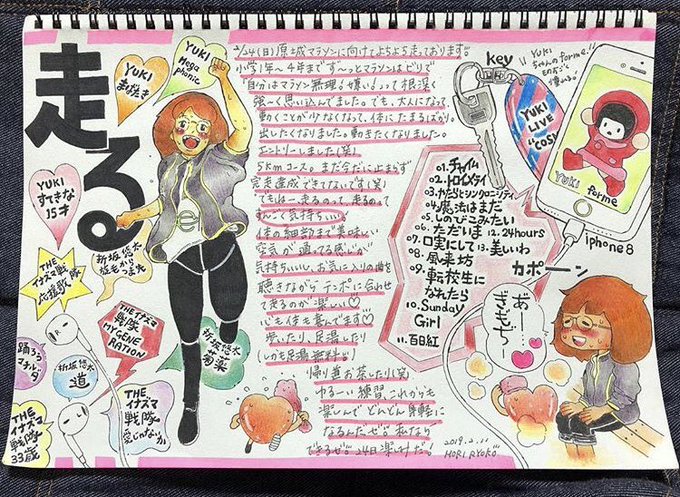 走る。
YUKI
Mega
phonic
YUKI
まばたき
YUKI
すてきな
15才
折坂悠太
THE イナズマ戦隊
応援歌
THE イナズマ
戦隊
MY GENE
RATION
折坂悠太
芍薬
踊ろう
マチルダ
折坂悠太
道
THE
イナズマ
戦隊
33歳
THE
イナズマ
戦隊
愛じゃないか
2/24(日)原城マラソンに向けてよちよち走っております。
小学1年〜4年まずーっとマラソンはビリで
「自分はマラソン無理！嫌い！」って根深く
強〜く思い込んでました。でも、大人になって、
動くことが少なくなって、体にたまるばかり。
出したくなりました。動きたくなりました。
エントリーしました(笑)
5kmコース。まだ今だに止まらず
完走達成できてないです(笑)
でもは
走るのって、走るのって
すっごく気持ちいい
体の細部まで美味しい
空気が通ってる感じが
気持ちいいし、お気に入りの曲を
聴きながらテンポに合わせ
て走るのが楽しい♡
心も体も喜んでます♡
歩いたり、足湯したり
(しかも足湯無料!!)
帰り道お茶したり(笑)
ゆるーい練習、これからも
楽しんでどんどん身軽に
なるんだぜ!!私なり
できるぜ!!24日楽しみだ!
key
"YUKI
ちゃんのforme."
YUKI
LIVE
"COSI
YUKI
forme
iphone8
01.チャイム
02.トロイメライ
03.かたちとシンクロニシティ
04.魔法はまだ
05.しのびこみたい
06.ただいま 12.24hours
07.口実にして 13.美しいわ
08.風来坊
09.転校生に
なれたら
10.Sunday
Girl
11.百日紅
カポーン
あー
きもちー
2019.2.11
HORI RYOKO